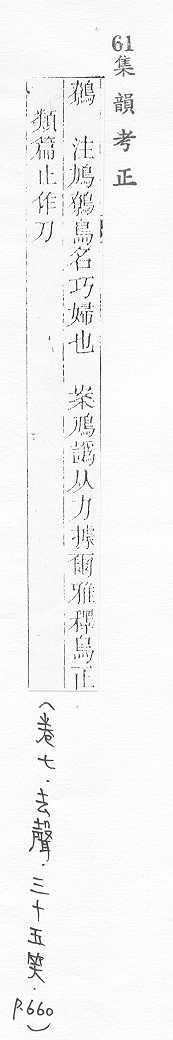 61集韻考正
鷯　注鳨鷯鳥名巧婦也　案鳭譌从力據爾雅釋鳥正
類篇止作刀
（卷七．去聲．三十五笑．P.660）